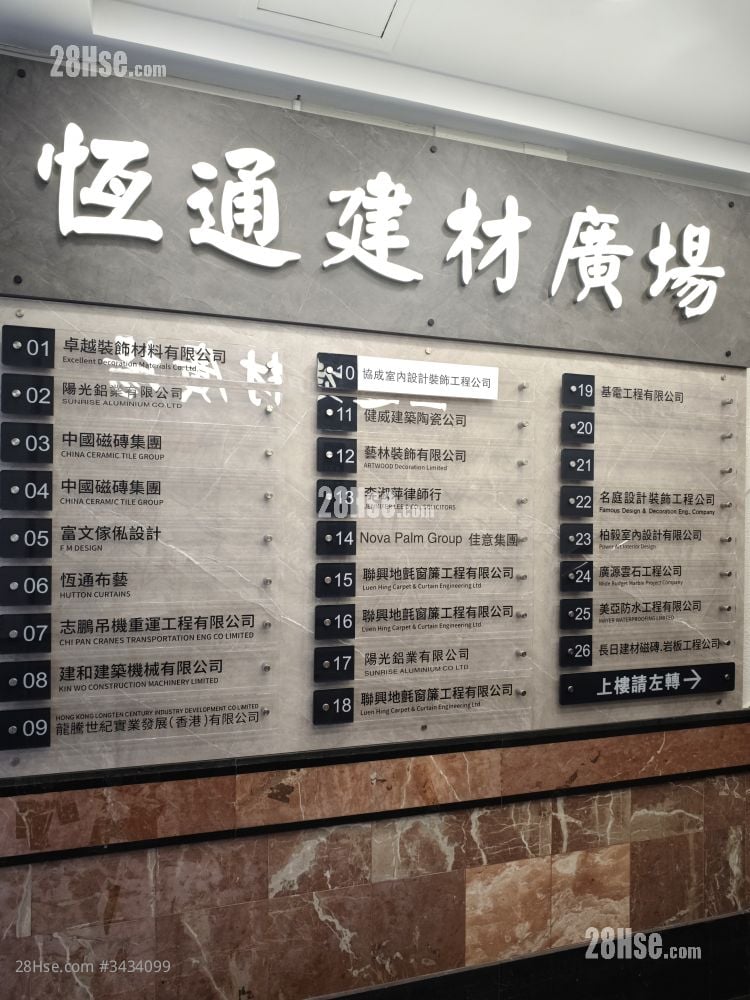 28Hse.com
恆通建材廣場
01 卓越裝飾材料有限公司
Excellent Decoration Materials Co. Ltd.
02 陽光鋁業有限公司
SUNRISE ALUMINIUM CO LTD
03 中國磁磚集團
CHINA CERAMIC TILE GROUP
04 中國磁磚集團
CHINA CERAMIC TILE GROUP
05 富文傢俬設計
F M DESIGN
06 恆通布藝
HUTTON CURTAINS
07 志鵬吊機重運工程有限公司
CHI PAN CRANES TRANSPORTATION ENG CO LIMITED
08 建和建築機械有限公司
KIN WO CONSTRUCTION MACHINERY LIMITED
HONG KONG LONGTEN CENTURY INDUSTRY DEVELOPMENT CO LIMITED
09 龍騰世紀實業發展(香港)有限公司
10 協成室內設計裝飾工程公司
11 健威建築陶瓷公司
12 藝林裝飾有限公司
ARTWOOD Decoration Limited
13 李淑萍律師行
28Hse.com
14 Nova Palm Group 佳意集團
15 聯興地氈窗簾工程有限公司
Luen Hing Carpet & Curtain Engineering Ltd.
16 聯興地氈窗簾工程有限公司
Luen Hing Carpet & Curtain Engineering Ltd.
17 陽光鋁業有限公司
SUNRISE ALUMINIUM CO LTD
18 聯興地氈窗簾工程有限公司
Luen Hing Carpet & Curtain Engineering Ltd.
19 基電工程有限公司
20
21
22 名庭設計裝飾工程公司
Famous Design & Decoration Eng., Company
23 柏毅室內設計有限公司
Power Art Interior Design
24 廣源雲石工程公司
Wide Budget Marble Project Company
25 美亞防水工程有限公司
MAYER WATERPROOFING LIMITED
26 長日建材磁磚.岩板工程公司
上樓請左轉→
28Hse.com
28Hse.com #3434099